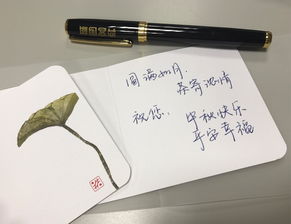 圆满如月,
聊寄浓情
祝您:
中秋快乐
平安幸福